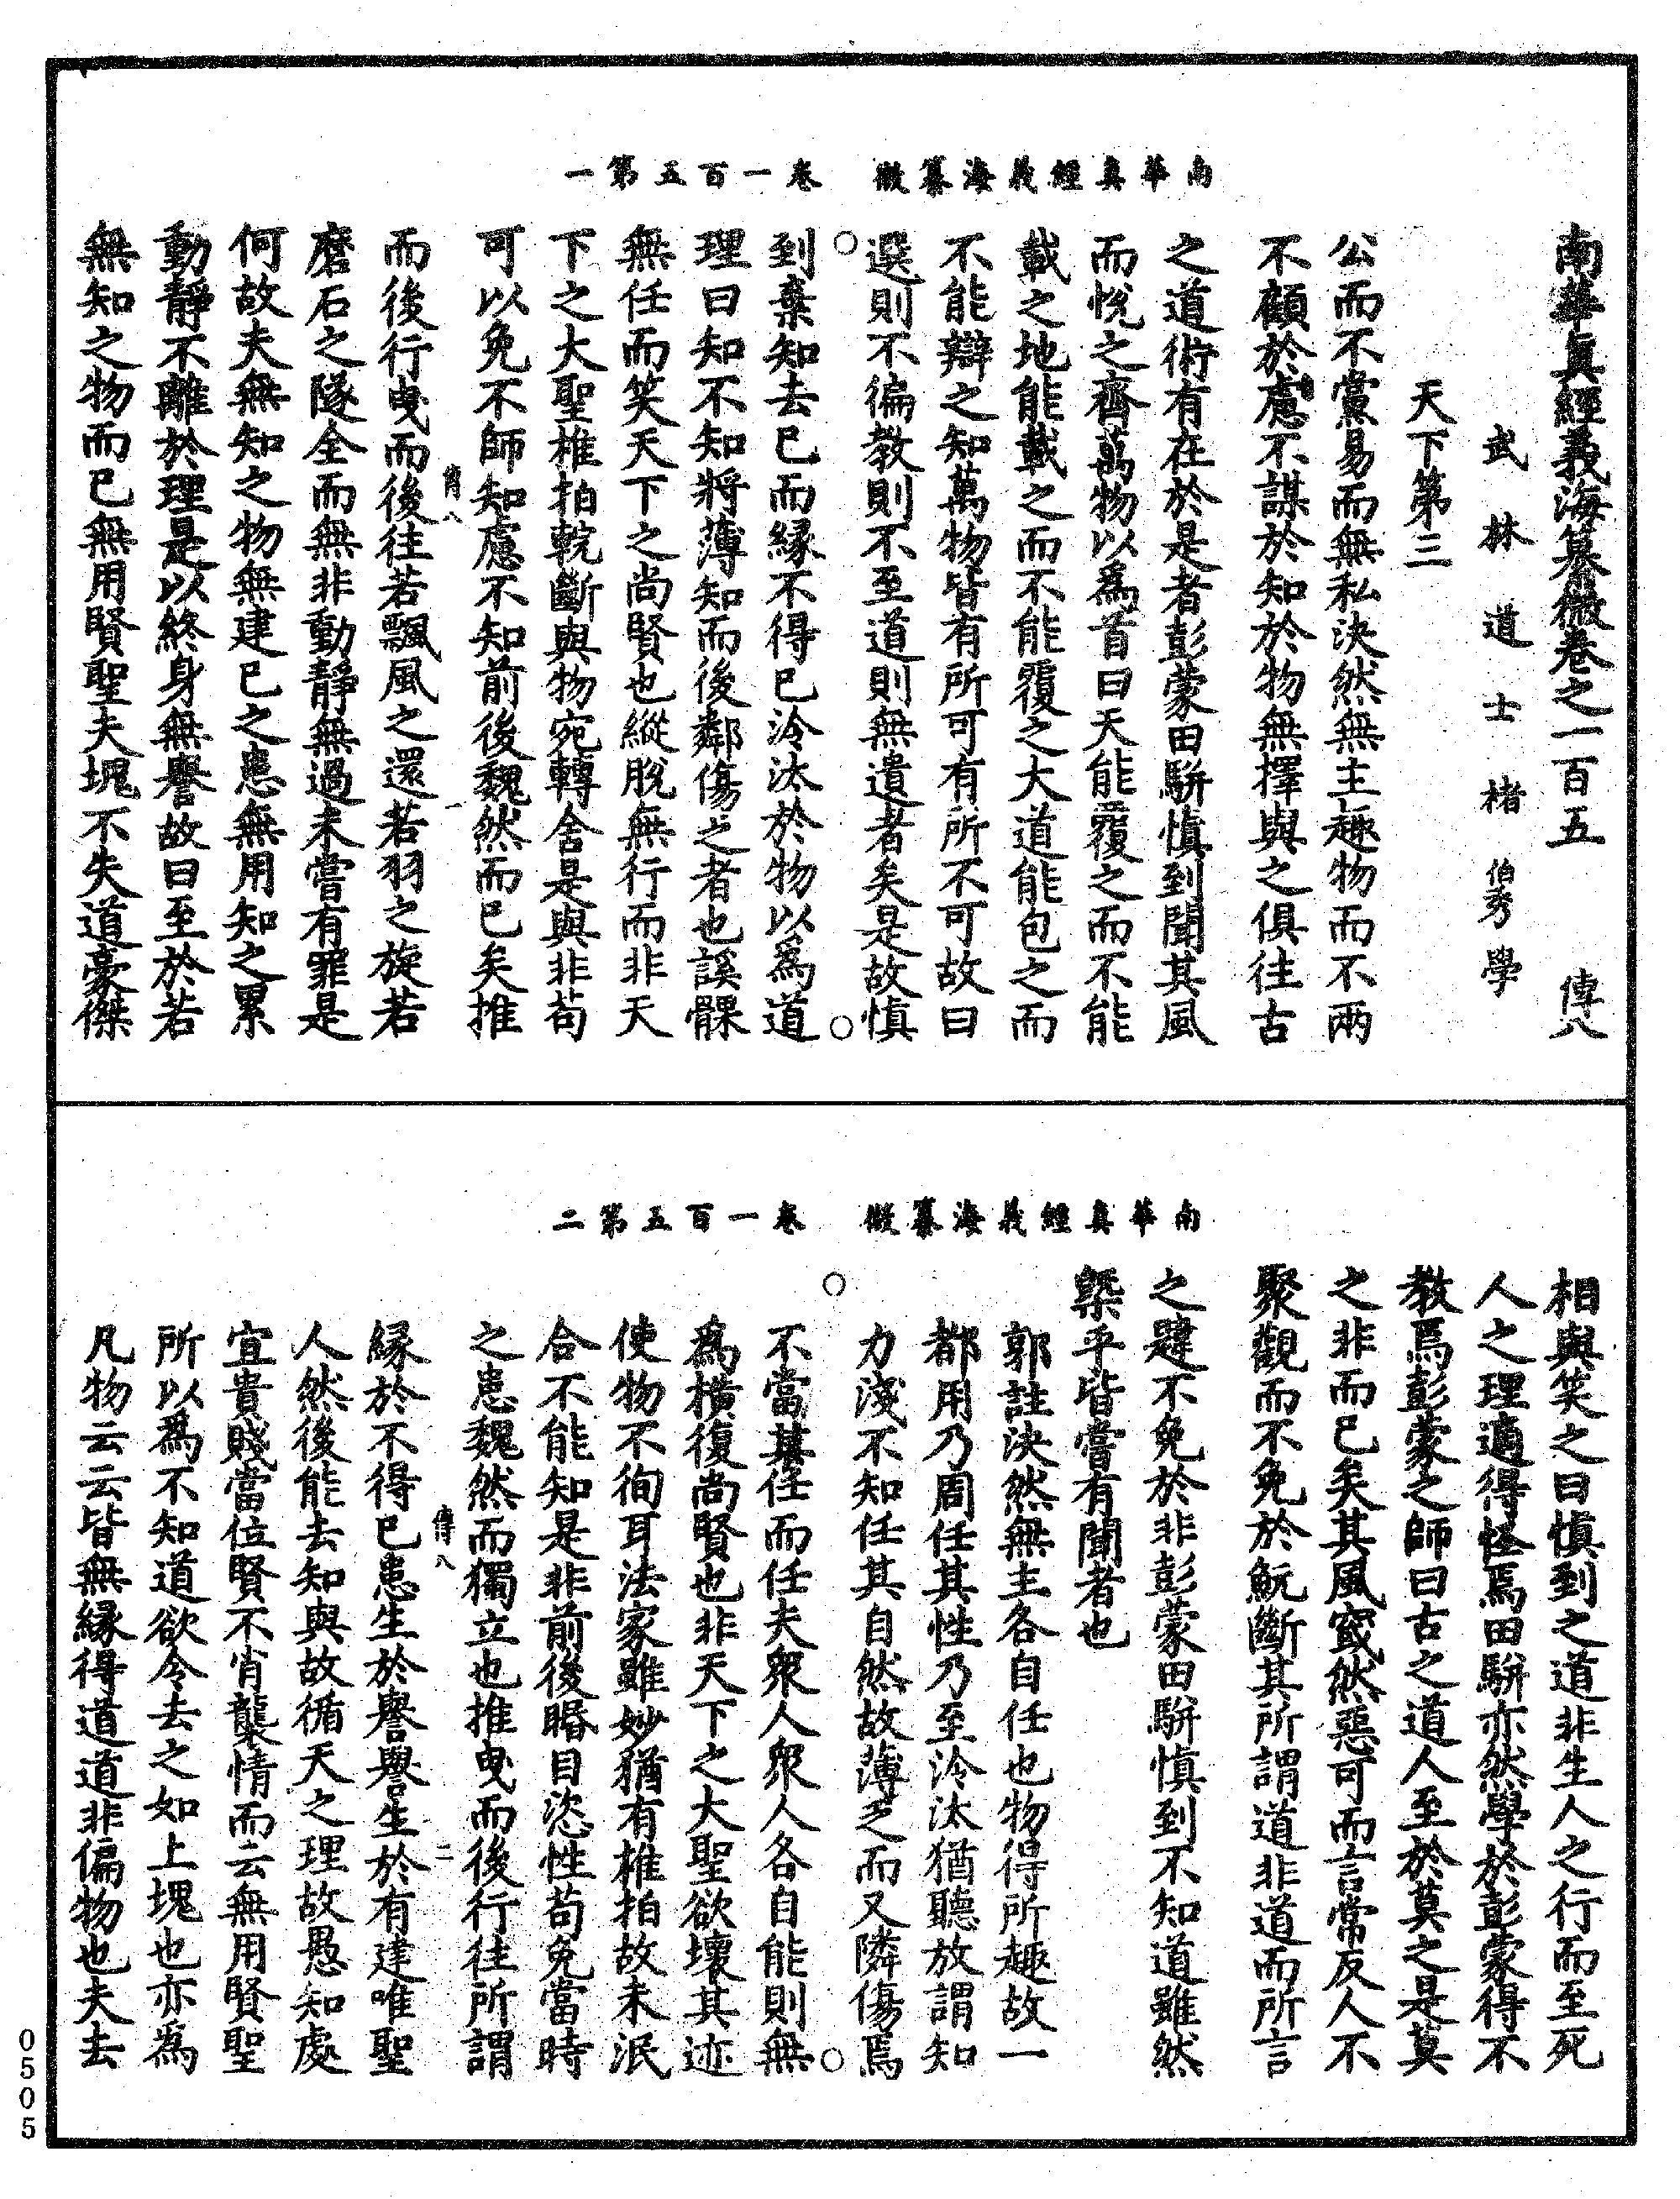 南華真經義海纂微　卷一百五第一
南華真經義海纂微卷之一百五　傳八
武林道士褚伯秀學
天下第三
公而不黨易而無私決然無主趣物而不兩
不顧於慮不謀於知於物無擇與之俱往古
之道術有在於是者彭蒙田駢慎到聞其風
而悅之齊萬物以爲首曰天能覆之而不能
載之地能載之而不能覆之大道能包之而
不能辯之知萬物皆有所可有所不可故曰
選則不徧教則不至道則無遺者矣是故慎
到棄知去已而緣不得已泠汰於物以爲道
理曰知不知將薄知而後鄰傷之者也謑髁
無任而笑天下之尚賢也縱脫無行而非天
下之大聖椎拍輐斷與物宛轉舍是與非苟
可以免不師知慮不知前後魏然而已矣推
傳八　一
而後行曳而後往若飄風之還若羽之旋若
磨石之隧全而無非動靜無過未嘗有罪是
何故夫無知之物無建已之患無用知之累
動靜不離於理是以終身無譽故曰至於若
無知之物而已無用賢聖夫塊不失道豪傑
南華真經義海纂微　卷一百五第二
相與笑之曰慎到之道非生人之行而至死
人之理適得怪焉田駢亦然學於彭蒙得不
教焉彭蒙之師曰古之道人至於莫之是莫
之非而已矣其風窢然惡可而言常反人不
聚觀而不免於魭斷其所謂道非道而所言
之韙不免於非彭蒙田駢慎到不知道雖然
槩乎皆嘗有聞者也
郭註決然無主各自任也物得所趣故一
都用乃周任其性乃至泠汰猶聽放謂知
力淺不知任其自然故薄之而又隣傷焉
不當其任而任夫衆人衆人各自能則無
爲橫復尚賢也非天下之大聖欲壞其迹
使物不徇耳法家雖妙猶有椎拍故未泯
合不能知是非前後睧目恣性苟免當時
之患魏然而獨立也推曳而後行往所謂
傳八　二
緣於不得已患生於譽譽生於有建唯聖
人然後能去知與故循天之理故愚知處
宜貴賤當位賢不肖襲情而云無用賢聖
所以爲不知道欲令去之如土塊也亦爲
凡物云云皆無緣得道道非偏物也夫去
0505